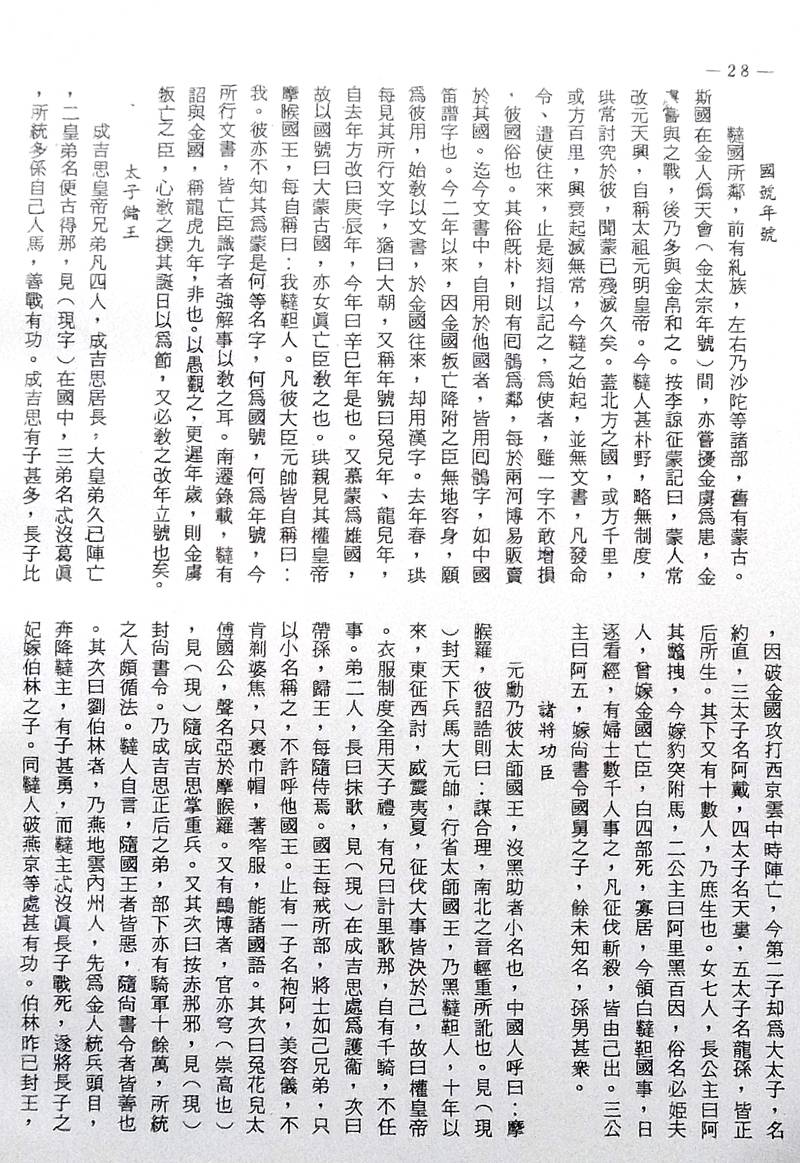 — 28 —
國號年號
韃國所鄰，前有糺族，左右乃沙陀等諸部，舊有蒙古。
斯國在金人僞天會（金太宗年號）間，亦嘗擾金虜爲患，金
虜嘗與之戰，後乃多與金帛和之。按李諒征蒙記曰，蒙人常
改元天興，自稱太祖元明皇帝。今韃人甚朴野，略無制度，
珙常討究於彼，聞蒙已殘滅久矣。蓋北方之國，或方千里，
或方百里，興衰起滅無常，今韃之始起，並無文書，凡發命
令、遣使往來，止是刻指以記之，爲使者，雖一字不敢增損
，彼國俗也。其俗旣朴，則有囘鶻爲鄰，每於兩河博易販賣
於其國。迄今文書中，自用於他國者，皆用囘鶻字，如中國
笛譜字也。今二年以來，因金國叛亡降附之臣無地容身，願
爲彼用，始敎以文書，於金國往來，却用漢字。去年春，珙
每見其所行文字，猶曰大朝，又稱年號曰兔兒年、龍兒年，
自去年方改曰庚辰年，今年曰辛巳年是也。又慕蒙爲雄國，
故以國號曰大蒙古國，亦女眞亡臣敎之也。珙親見其權皇帝
摩睺國王，每自稱曰：我韃靼人。凡彼大臣元帥皆自稱曰：
我。彼亦不知其爲蒙是何等名字，何爲國號，何爲年號，今
所行文書，皆亡臣識字者強解事以敎之耳。南遷錄載，韃有
詔與金國，稱龍虎九年，非也。以愚觀之，更遲年歲，則金虜
叛亡之臣，必敎之撰其誕日以爲節，又必敎之改年立號也矣。
太子儲王
成吉思皇帝兄弟凡四人，成吉思居長，大皇弟久已陣亡
，二皇弟名便古得那，見（現字）在國中，三弟名忒沒葛眞
，所統多係自己人馬，善戰有功。成吉思有子甚多，長子比
，因破金國攻打西京雲中時陣亡，今第二子却爲大太子，名
約直，三太子名阿戴，四太子名天婁，五太子名龍孫，皆正
后所生。其下又有十數人，乃庶生也。女七人，長公主曰阿
其鼈拽，今嫁豹突附馬，二公主曰阿里黑百因，俗名必姬夫
人，曾嫁金國亡臣，白四部死，寡居，今領白韃靼國事，日
逐看經，有婦士數千人事之，凡征伐斬殺，皆由己出。三公
主曰阿五，嫁尙書令國舅之子，餘未知名，孫男甚衆。
諸將功臣
元勳乃彼太師國王，沒黑助者小名也，中國人呼曰：摩
睺羅，彼詔誥則曰：謀合理，南北之音輕重所訛也。見（現
）封天下兵馬大元帥，行省太師國王，乃黑韃靼人，十年以
來，東征西討，威震夷夏，征伐大事皆決於己，故曰權皇帝
。衣服制度全用天子禮，有兄曰計里歌那，自有千騎，不任
事。弟二人，長曰抹歌，見（現）在成吉思處爲護衞，次曰
帶孫，歸王，每隨侍焉。國王每戒所部，將士如己兄弟，只
以小名稱之，不許呼他國王。止有一子名袍阿，美容儀，不
肯剃婆焦，只裹巾帽，著窄服，能諸國語。其次曰兔花兒太
傅國公，聲名亞於摩睺羅。又有鷓博者，官亦穹（崇高也）
，見（現）隨成吉思掌重兵。又其次曰按赤那邪，見（現）
封尙書令。乃成吉思正后之弟，部下亦有騎軍十餘萬，所統
之人頗循法。韃人自言，隨國王者皆惡，隨尙書令者皆善也
。其次曰劉伯林者，乃燕地雲內州人，先爲金人統兵頭目，
奔降韃主，有子甚勇，而韃主忒沒眞長子戰死，遂將長子之
妃嫁伯林之子。同韃人破燕京等處甚有功。伯林昨已封王，